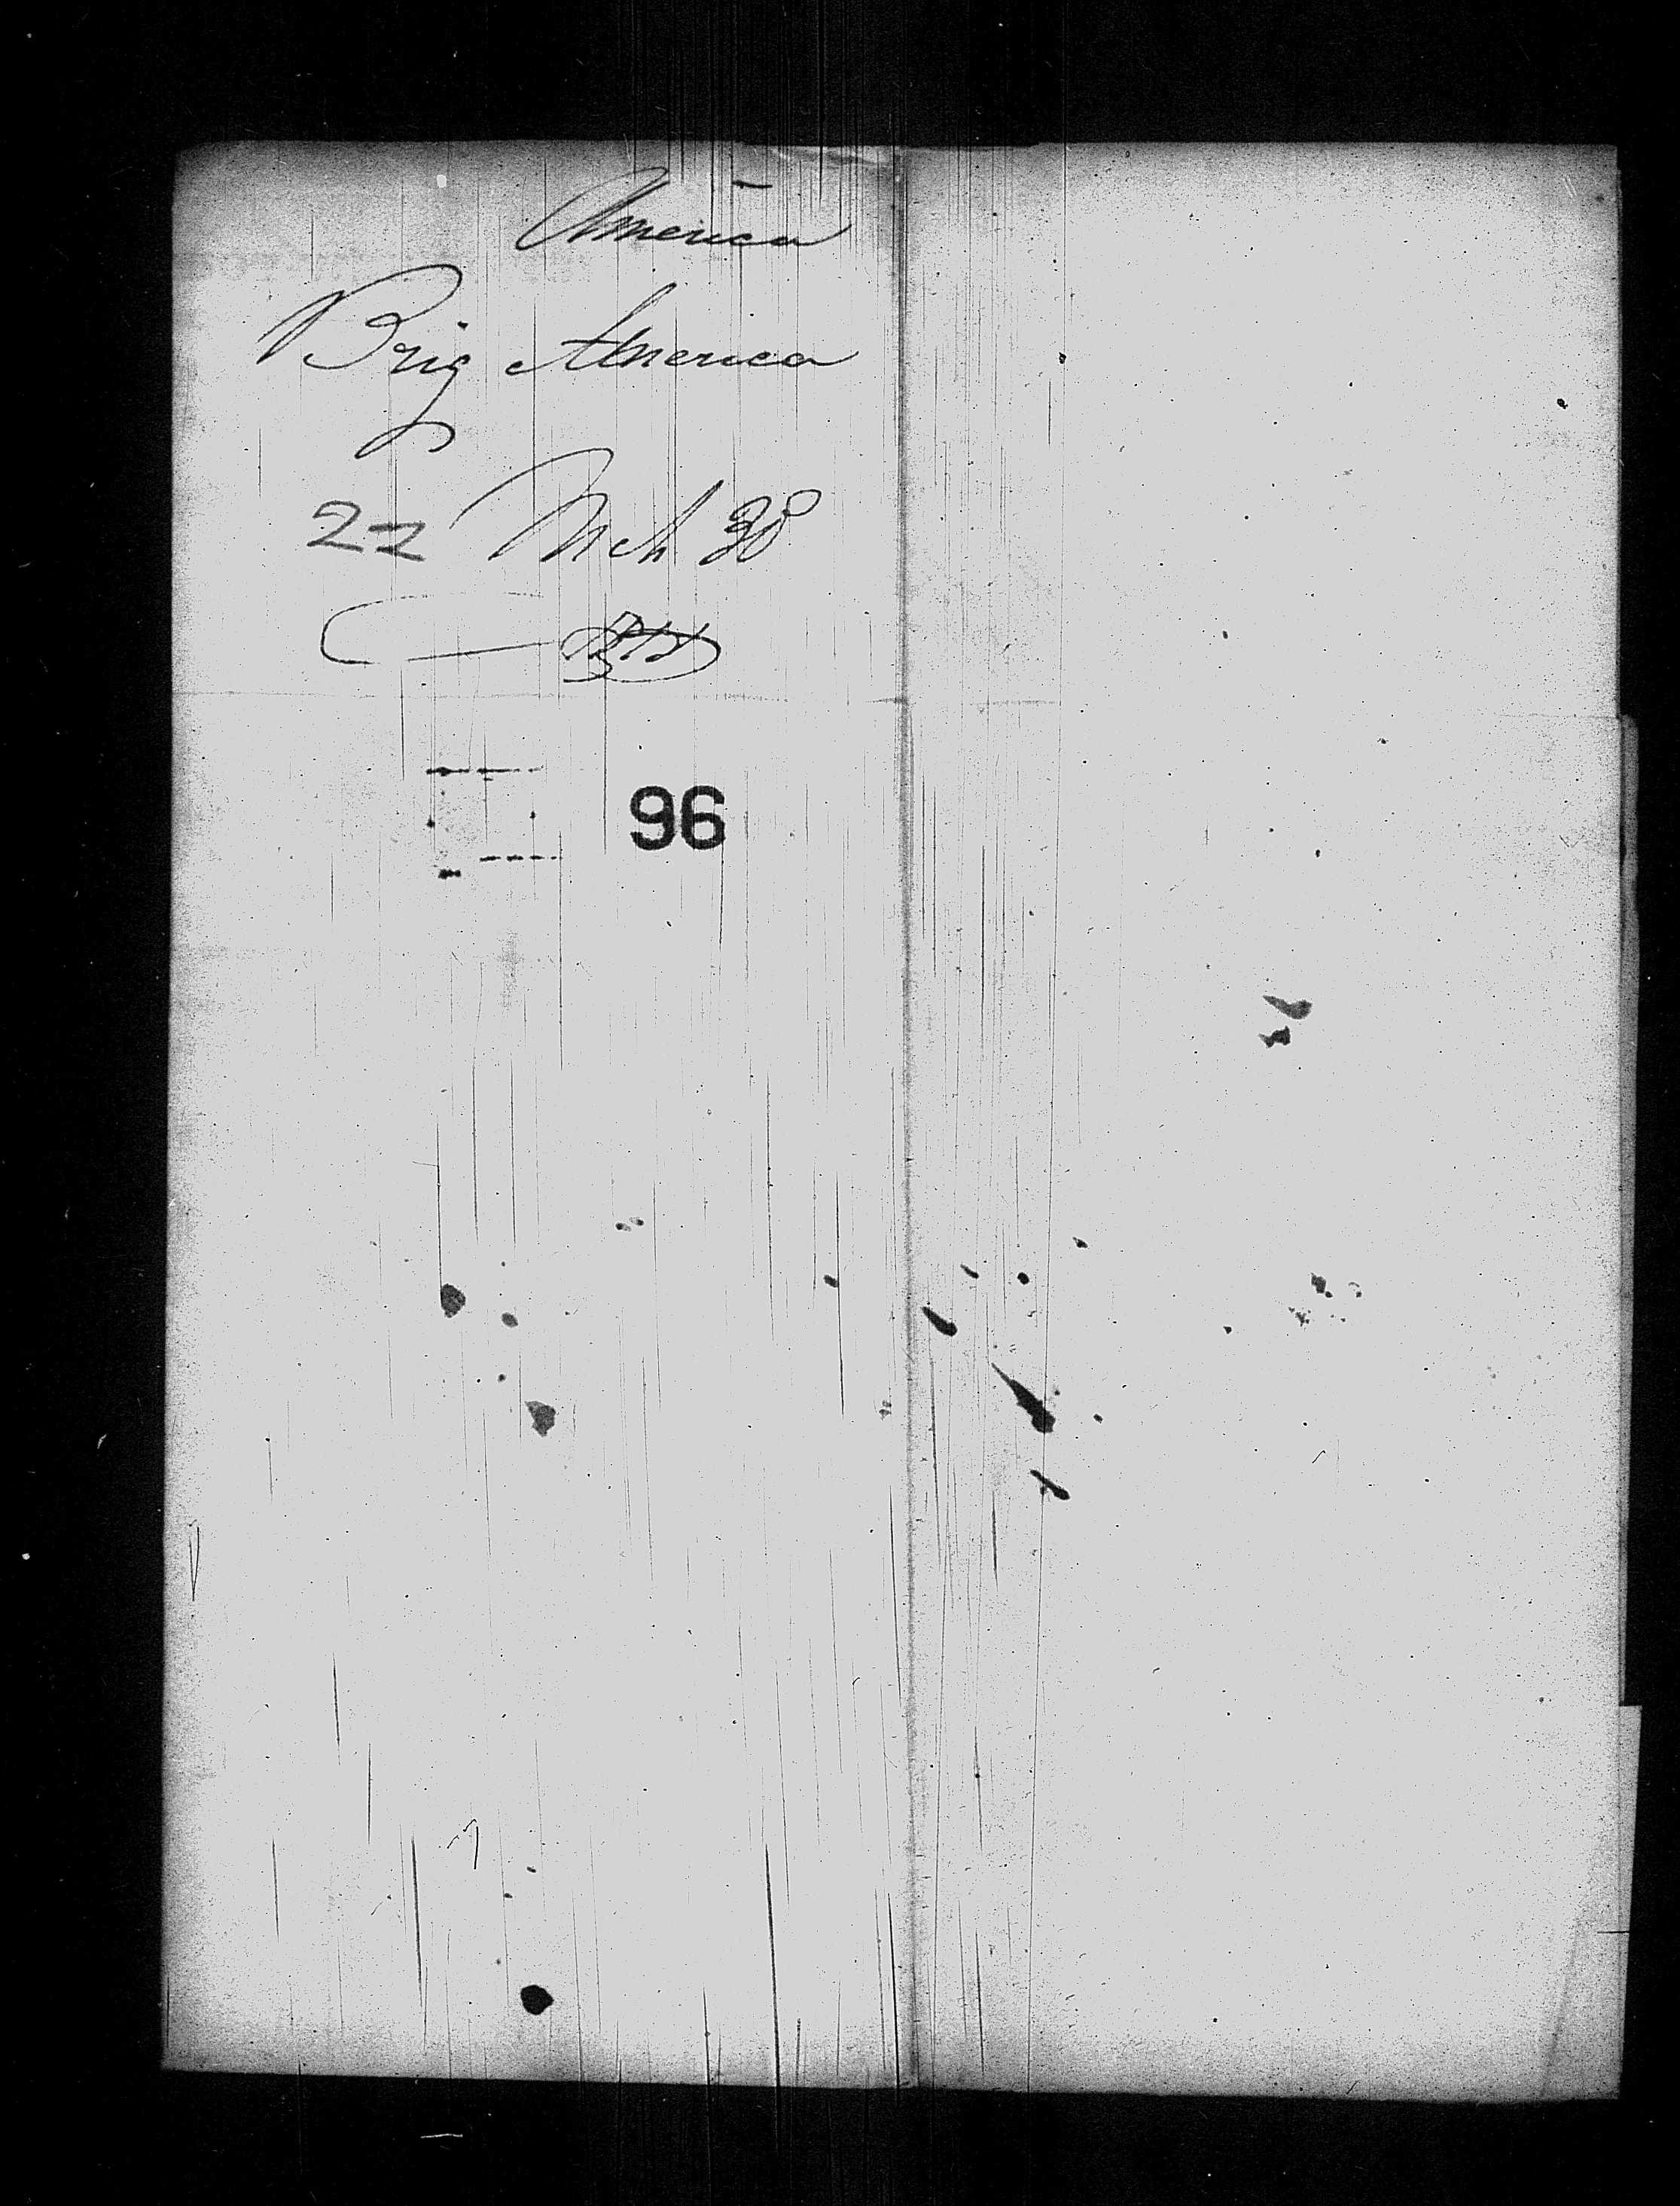 America
Brig America
22 Mch 38
96